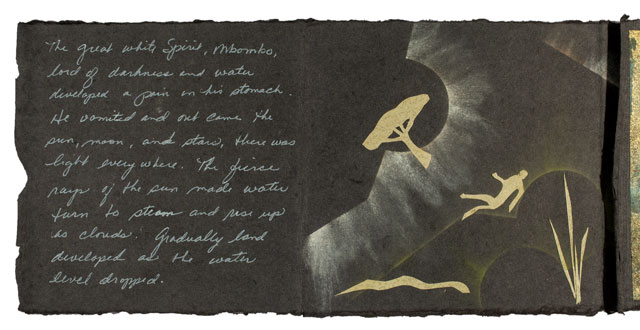 The great white Spirit, Mbombo,
lord of darkness and water
developed a pain in his stomach.
He vomited and out came the
sun, moon, and stars, there was
light every where. The fierce
rays of the sun made water
turn to steam and rise up
as clouds. Gradually land
developed as the water
level dropped.